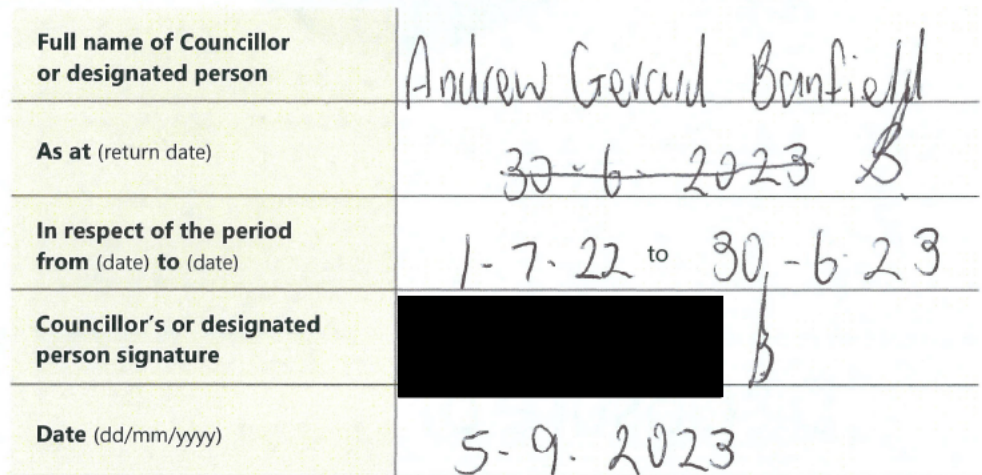 Full name of Councillor
or designated person
Andrew Gerard Banfield
As at (return date)
30-6-2023
In respect of the period
from (date) to (date)
1-7-22 to 30-6-23
Councillor's or designated
person signature
Date (dd/mm/yyyy)
5-9.2023